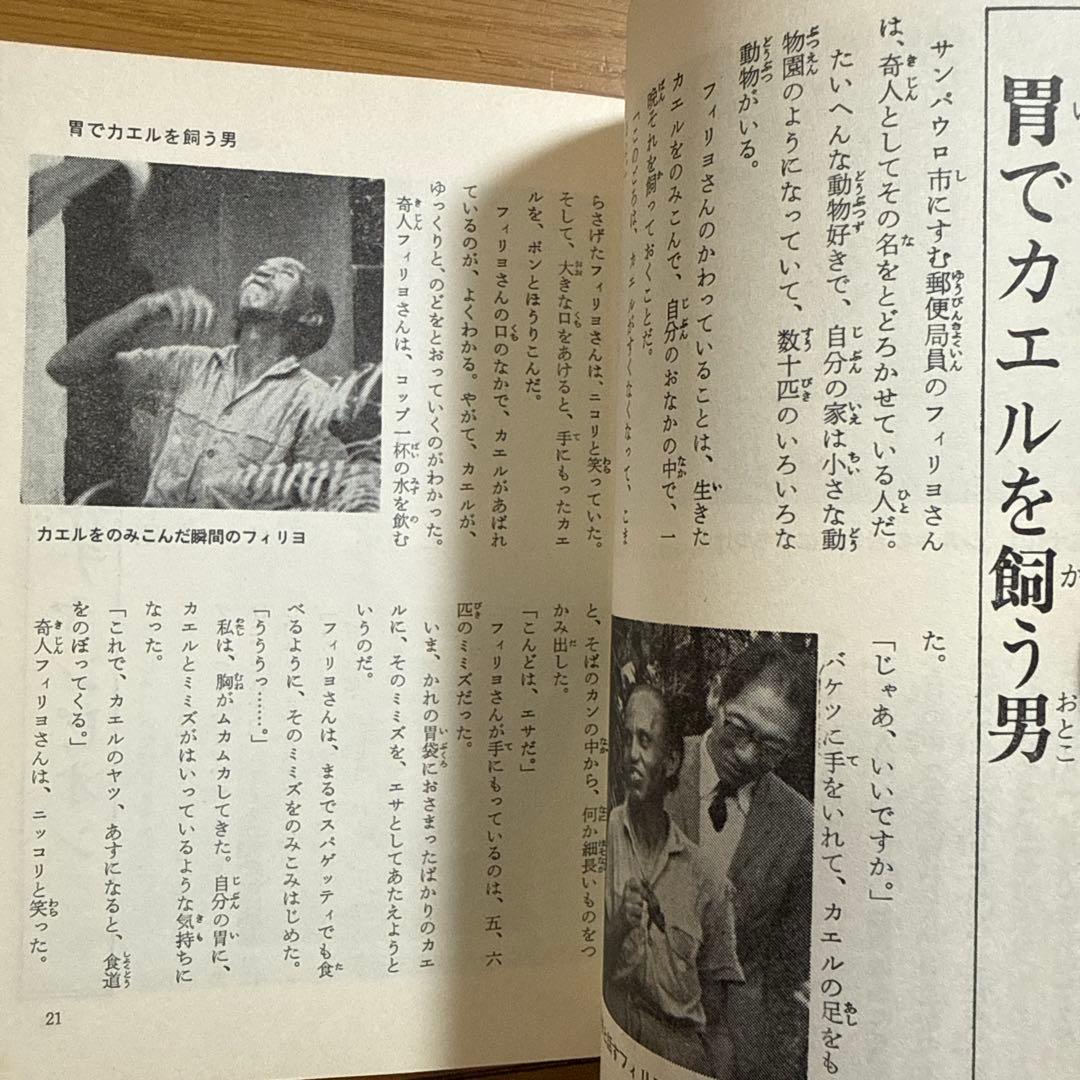 胃でカエルを飼う男
サンパウロ市にすむ郵便局員のフィリヨさん
は、奇人としてその名をとどろかせている人だ。
たいへんな動物好きで、自分の家は小さな動
物園のようになっていて、数十匹のいろいろな
動物がいる。
フィリヨさんのかわっていることは、生きた
カエルをのみこんで、自分のおなかの中で、一
晩それを飼っておくことだ。
「このごろは、カエルがすくなくなって、こま
た。
「じゃあ、いいですか。」
バケツに手をいれて、カエルの足をも
フィリ
胃でカエルを飼う男
らさげたフィリヨさんは、ニコリと笑っていた。
そして、大きな口をあけると、手にもったカエ
ルを、ポンとほうりこんだ。
フィリヨさんの口のなかで、カエルがあばれ
ているのが、よくわかる。やがて、カエルが、
ゆっくりと、のどをとおっていくのがわかった。
奇人フィリヨさんは、コップ一杯の水を飲む
カエルをのみこんだ瞬間のフィリヨ
と、そばのカンの中から、何か細長いものをつ
かみ出した。
「こんどは、エサだ。」
フィリヨさんが手にもっているのは、五、六
匹のミミズだった。
いま、かれの胃袋におさまったばかりのカエ
ルに、そのミミズを、エサとしてあたえようと
いうのだ。
フィリヨさんは、まるでスパゲッティでも食
べるように、そのミミズをのみこみはじめた。
「うううっ……。」
私は、胸がムカムカしてきた。自分の胃に、
カエルとミミズがはいっているような気持ちに
なった。
「これで、カエルのヤツ、あすになると、食道
をのぼってくる。」
奇人フィリヨさんは、ニッコリと笑った。
21